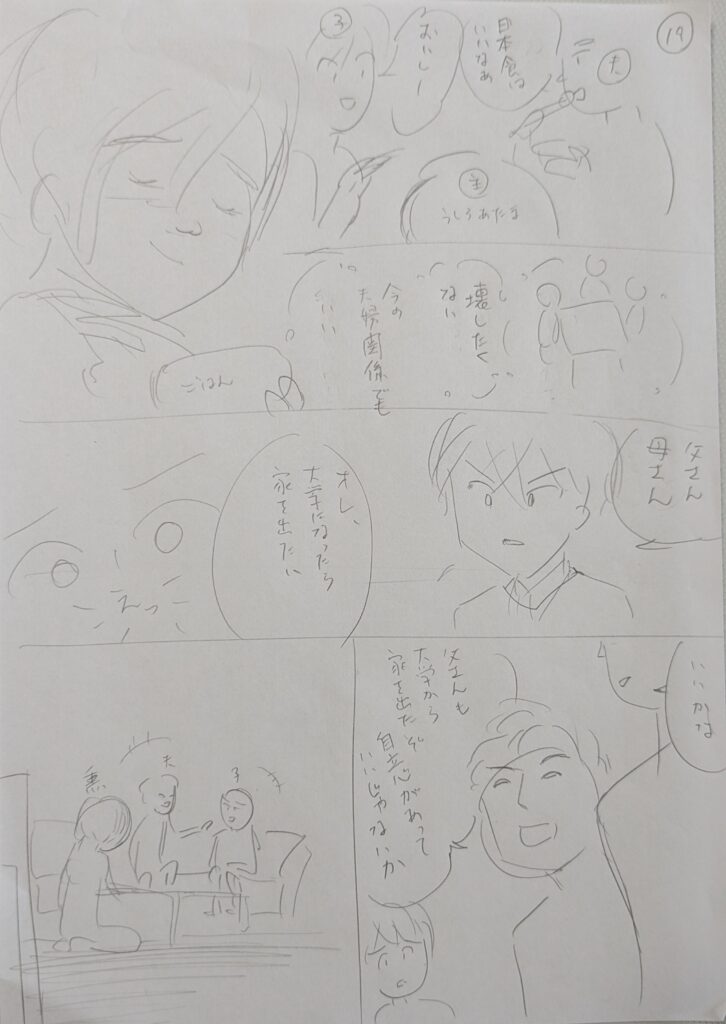 19
夫
日本食は
いいなぁ
おいしー
子
主
うしろあたま
ごはん
壊したく
ない
今の
夫婦関係でも
いい
父さん
母さん
オレ、
大学になったら
家を出たい
えっ
いいかな
父さんも
大学から
家を出たぞ
自立心があって
いいじゃないか
子
夫